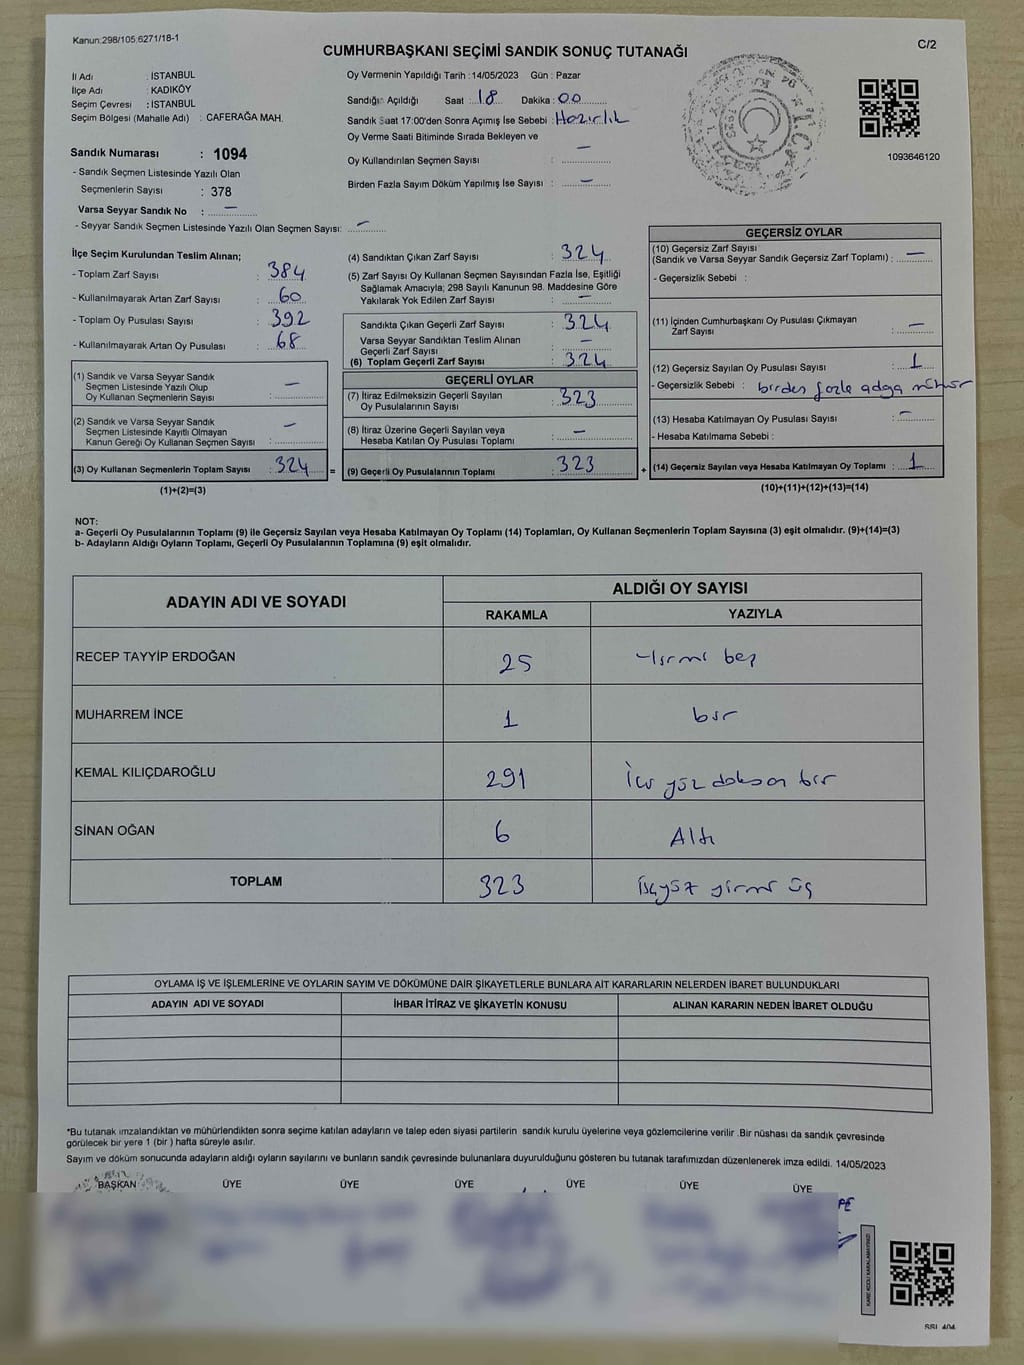 Kanun:298/105.6271/18-1
C/2
CUMHURBAŞKANI SEÇİMİ SANDIK SONUÇ TUTANAĞI
İl Adı : İSTANBUL
İlçe Adı : KADIKÖY
Seçim Çevresi : İSTANBUL
Seçim Bölgesi (Mahalle Adı) : CAFERAĞA MAH.
Sandık Numarası : 1094
- Sandık Seçmen Listesinde Yazılı Olan
Seçmenlerin Sayısı : 378
Varsa Seyyar Sandık No : —
- Seyyar Sandık Seçmen Listesinde Yazılı Olan Seçmen Sayısı: —
Oy Vermenin Yapıldığı Tarih :14/05/2023 Gün : Pazar
Sandığın Açıldığı Saat : 18 Dakika : 00
Sandık Saat 17:00'den Sonra Açımış İse Sebebi : Hazırlık
Oy Verme Saati Bitiminde Sırada Bekleyen ve
Oy Kullandırılan Seçmen Sayısı : —
Birden Fazla Sayım Döküm Yapılmış İse Sayısı : —
1093646120
İlçe Seçim Kurulundan Teslim Alınan;
- Toplam Zarf Sayısı : 384
- Kullanılmayarak Artan Zarf Sayısı : 60
- Toplam Oy Pusulası Sayısı : 392
- Kullanılmayarak Artan Oy Pusulası : 68
(1) Sandık ve Varsa Seyyar Sandık
Seçmen Listesinde Yazılı Olup
Oy Kullanan Seçmenlerin Sayısı : —
(2) Sandık ve Varsa Seyyar Sandık
Seçmen Listesinde Kayıtlı Olmayan
Kanun Gereği Oy Kullanan Seçmen Sayısı : —
(3) Oy Kullanan Seçmenlerin Toplam Sayısı : 324 =
(1)+(2)=(3)
(4) Sandıktan Çıkan Zarf Sayısı : 324
(5) Zarf Sayısı Oy Kullanan Seçmen Sayısından Fazla İse, Eşitliği
Sağlamak Amacıyla; 298 Sayılı Kanunun 98. Maddesine Göre
Yakılarak Yok Edilen Zarf Sayısı : —
Sandıkta Çıkan Geçerli Zarf Sayısı : 324
Varsa Seyyar Sandıktan Teslim Alınan
Geçerli Zarf Sayısı : —
(6) Toplam Geçerli Zarf Sayısı : 324
GEÇERLİ OYLAR
(7) İtiraz Edilmeksizin Geçerli Sayılan
Oy Pusulalarının Sayısı : 323
(8) İtiraz Üzerine Geçerli Sayılan veya
Hesaba Katılan Oy Pusulası Toplamı : —
(9) Geçerli Oy Pusulalarının Toplamı : 323 +
GEÇERSİZ OYLAR
(10) Geçersiz Zarf Sayısı
(Sandık ve Varsa Seyyar Sandık Geçersiz Zarf Toplamı) : —
- Geçersizlik Sebebi :
(11) İçinden Cumhurbaşkanı Oy Pusulası Çıkmayan
Zarf Sayısı : —
(12) Geçersiz Sayılan Oy Pusulası Sayısı : 1
- Geçersizlik Sebebi : birden fazla adaya mühür
(13) Hesaba Katılmayan Oy Pusulası Sayısı : —
- Hesaba Katılmama Sebebi :
(14) Geçersiz Sayılan veya Hesaba Katılmayan Oy Toplamı : 1
(10)+(11)+(12)+(13)=(14)
NOT:
a- Geçerli Oy Pusulalarının Toplamı (9) ile Geçersiz Sayılan veya Hesaba Katılmayan Oy Toplamı (14) Toplamları, Oy Kullanan Seçmenlerin Toplam Sayısına (3) eşit olmalıdır. (9)+(14)=(3)
b- Adayların Aldığı Oyların Toplamı, Geçerli Oy Pusulalarının Toplamına (9) eşit olmalıdır.
ADAYIN ADI VE SOYADI
ALDIĞI OY SAYISI
RAKAMLA YAZIYLA
RECEP TAYYİP ERDOĞAN 25 Yirmi beş
MUHARREM İNCE 1 bir
KEMAL KILIÇDAROĞLU 291 İki yüz doksan bir
SİNAN OĞAN 6 Altı
TOPLAM 323 üçyüz yirmi üç
OYLAMA İŞ VE İŞLEMLERİNE VE OYLARIN SAYIM VE DÖKÜMÜNE DAİR ŞİKAYETLERLE BUNLARA AİT KARARLARIN NELERDEN İBARET BULUNDUKLARI
ADAYIN ADI VE SOYADI İHBAR İTİRAZ VE ŞİKAYETİN KONUSU ALINAN KARARIN NEDEN İBARET OLDUĞU
*Bu tutanak imzalandıktan ve mühürlendikten sonra seçime katılan adayların ve talep eden siyasi partilerin sandık kurulu üyelerine veya gözlemcilerine verilir .Bir nüshası da sandık çevresinde
görülecek bir yere 1 (bir ) hafta süreyle asılır.
Sayım ve döküm sonucunda adayların aldığı oyların sayılarını ve bunların sandık çevresinde bulunanlara duyurulduğunu gösteren bu tutanak tarafımızdan düzenlenerek imza edildi. 14/05/2023
BAŞKAN ÜYE ÜYE ÜYE ÜYE ÜYE ÜYE
KARE KODU KARALAMAYINIZ!